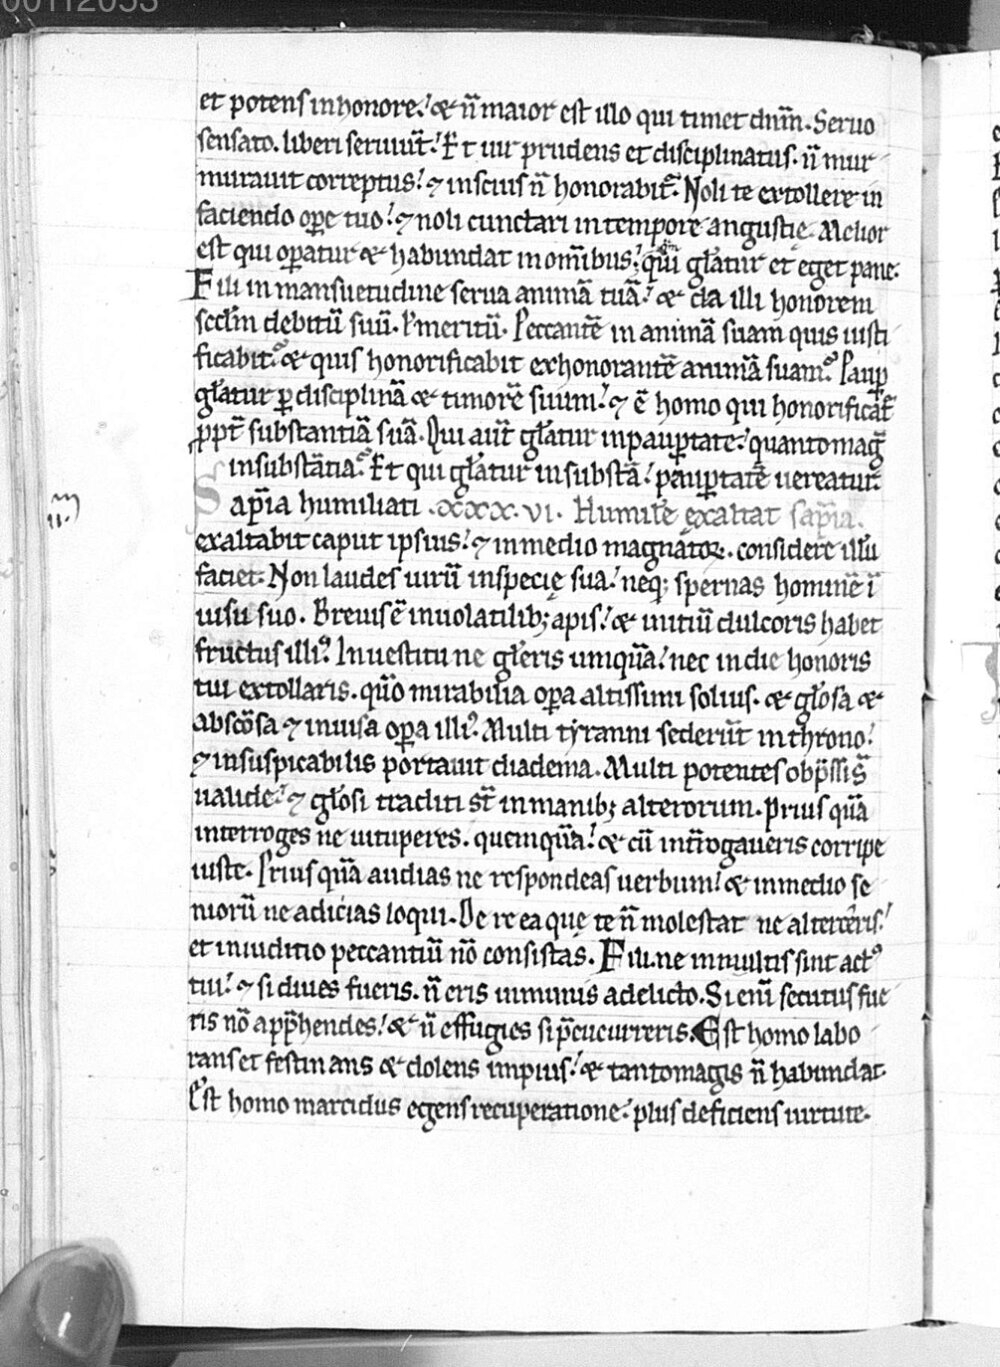 00112053
et potens in honore. & n̄ maior est illo qui timet dn̄m. Seruo
sensato. liberi seruiūt. Et uir prudens et disciplinatus. n̄ mur
murauit correptus. ⁊ inscius n̄ honorabit̄. Noli te extollere in
faciendo oꝑe tuo. ⁊ noli cunctari in tempore angustię. Melior
est qui oꝑatur & habundat in om̄ibus. quā gl̄atur et eget pane.
Fili in mansuetudine serua animā tuā. & da illi honorem
scd̄m debitū suū. l̄ meritū. Peccantē in animā suam quis iusti
ficabit. & quis honorificabit exhonorantē animā suam. Pauꝑ
gl̄atur ꝑ disciplinā & timorē suum. ⁊ ē homo qui honorificat̄
ꝓpt̄ substantiā suā. Qui aut̄ gl̄atur in pauꝑtate. quanto maḡ
in substātia. Et qui gl̄atur in substā. pauꝑtatē uereatur.
Sap̄ia humiliati .xxx.vi. Humilē exaltat sap̄ia.
exaltabit caput ipsius. ⁊ in medio magnatoꝝ. considere illū
faciet. Non laudes uirū in specię sua. neq; spernas hominē ī
uisu suo. Breuis ē in uolatilib; apis. & initiū dulcoris habet
fructus illiꝰ. In uestitu ne gl̄eris umquā. nec in die honoris
tui extollaris. qm̄o mirabilia oꝑa altissimi solius. & gl̄osa &
abscōsa ⁊ inuisa oꝑa illiꝰ. Multi tyranni sederūt in throno.
⁊ insuspicabilis portauit diadema. Multi potentes obp̄ssi s̄
ualide. ⁊ gl̄osi traditi st̄ in manib; alterorum. Prius quā
interroges ne uituperes. quemquā. & cū int̄rogaueris corripe
iuste. Prius quā audias ne respondeas uerbum. & in medio se
niorū ne adicias loqui. De re ea quę te n̄ molestat ne altercēris.
et in iuditio peccantiū nō consistas. Fili. ne in multis sint actꝰ
tui. ⁊ si diues fueris. n̄ eris inmunis a delicto. Si enī secutus fue
ris nō app̄hendes. & n̄ effugies si p̄cucurreris. Est homo labo
rans et festinans & dolens impius. & tanto magis n̄ habundat.
Est homo marcidus egens recuperatione. plus deficiens uirtute.